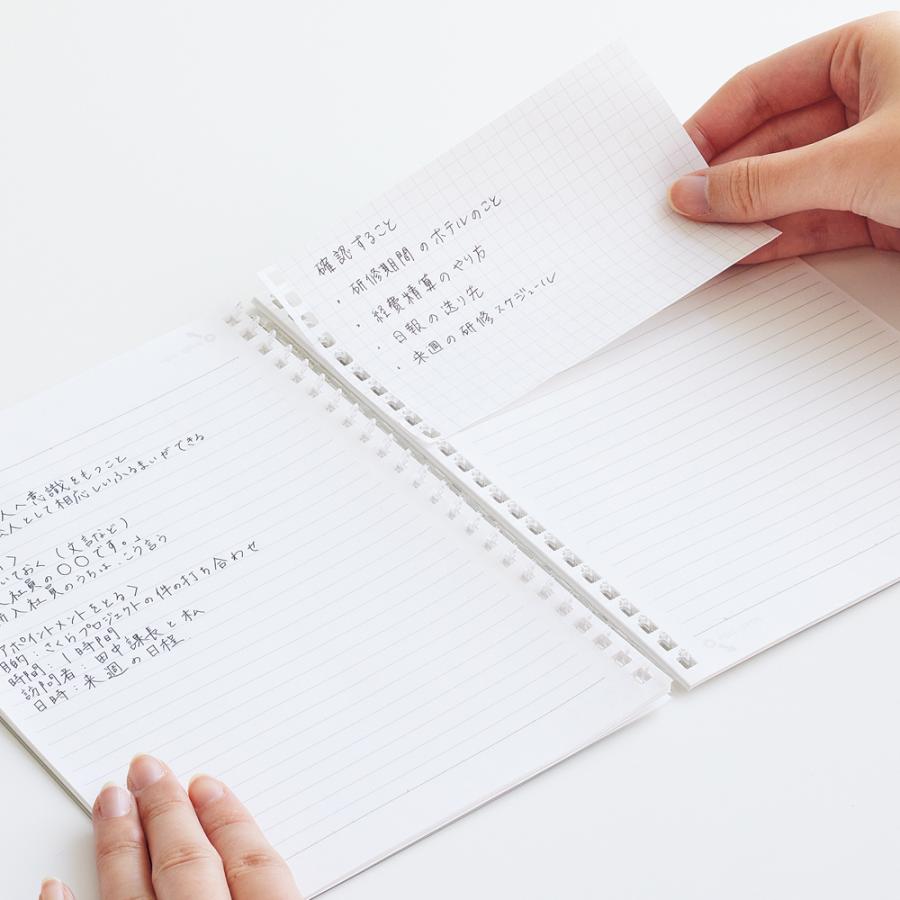 人へ意識をもつこと
人として相応しいふるまいができる
いておく (文言など)
入社員の〇〇です。」
新人社員のうちは、こう言う
アポイントメントをとる〉
目的:さくらプロジェクトの件の打ち合わせ
時間:1時間
訪問者:田中課長と私
日時:来週の日程
確認すること
・研修期間のホテルのこと
・経費精算のやり方
・日報の送り先
・来週の研修スケジュール